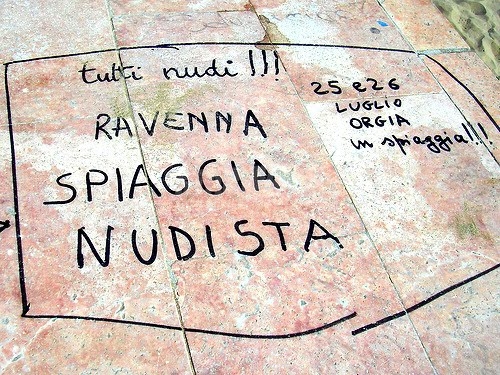 tutti nudi!!!
RAVENNA
SPIAGGIA
NUDISTA
25 e 26
LUGLIO
ORGIA
in spiaggia!!!